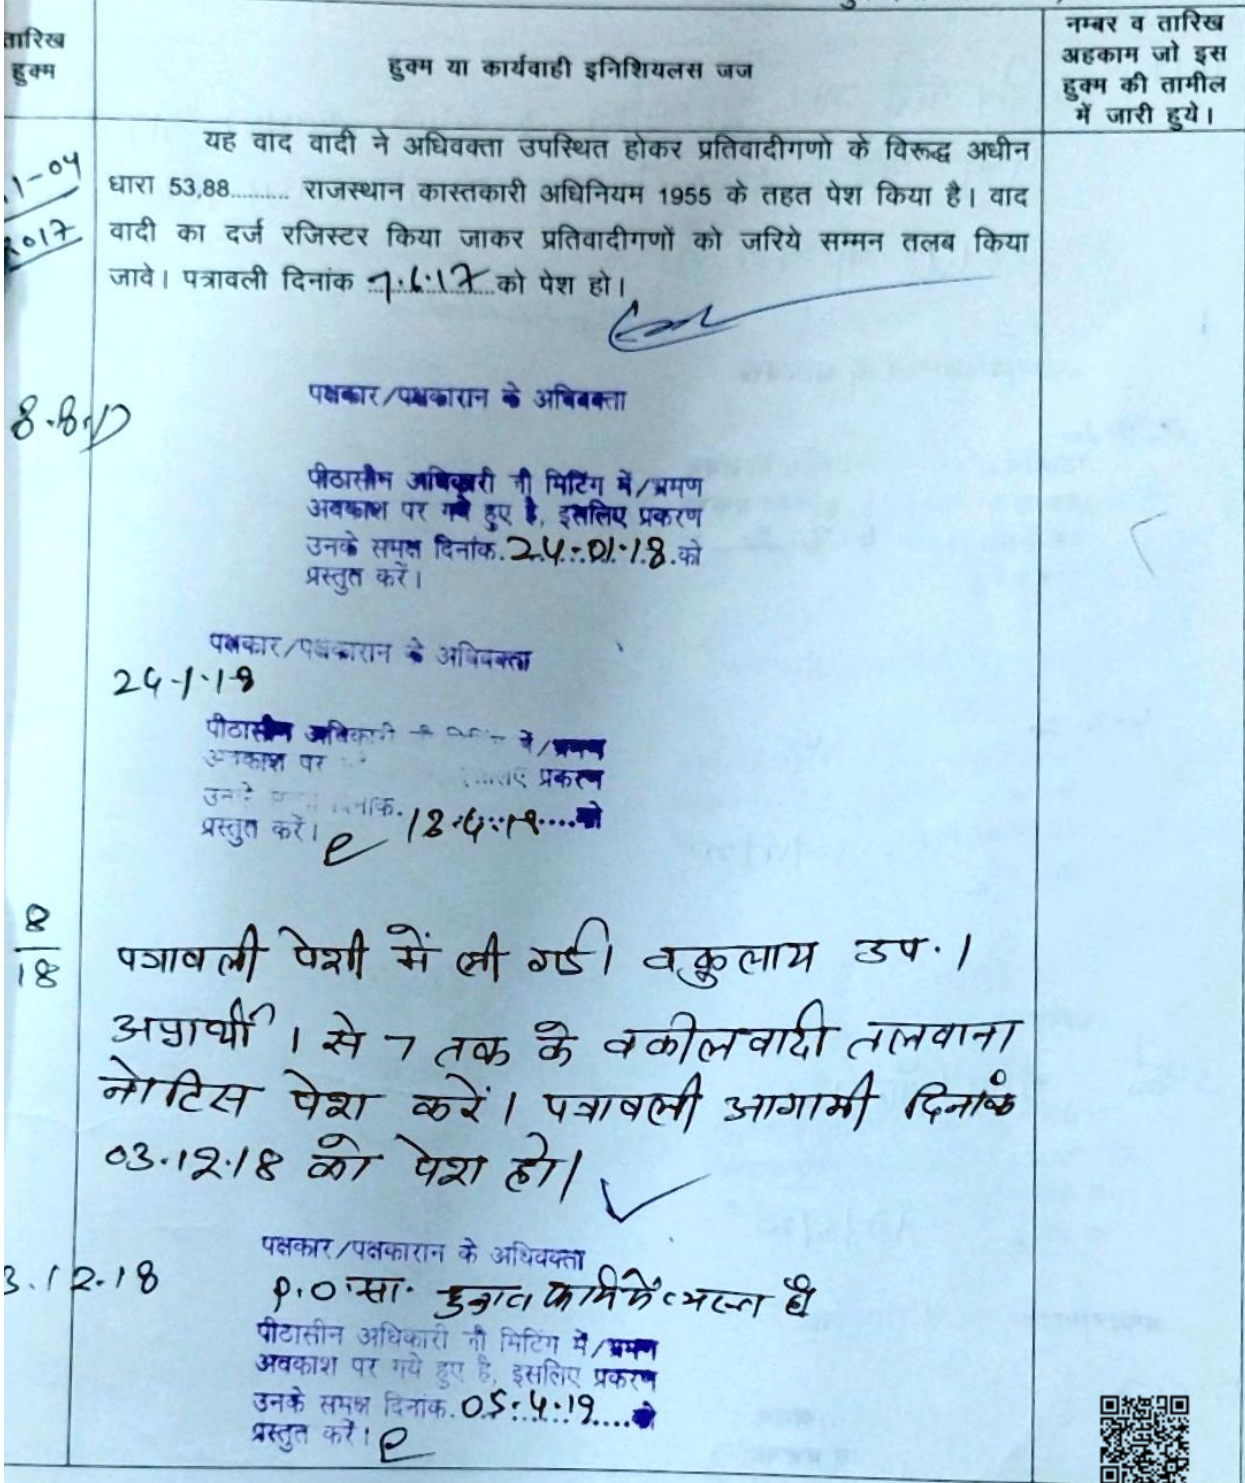 तारिख
हुक्म
हुक्म या कार्यवाही इनिशियलस जज
नम्बर व तारिख
अहकाम जो इस
हुक्म की तामील
में जारी हुये।
1-04
2017
यह वाद वादी ने अधिवक्ता उपस्थित होकर प्रतिवादीगणो के विरूद्ध अधीन
धारा 53,88.......... राजस्थान कास्तकारी अधिनियम 1955 के तहत पेश किया है। वाद
वादी का दर्ज रजिस्टर किया जाकर प्रतिवादीगणों को जरिये सम्मन तलब किया
जावे। पत्रावली दिनांक 7.6.17 को पेश हो।
8.8.17
पक्षकार/पक्षकारान के अधिवक्ता
पीठासीन अधिकारी जी मिटिंग में/भ्रमण
अवकाश पर गये हुए है, इसलिए प्रकरण
उनके समक्ष दिनांक.24.01.18.को
प्रस्तुत करें।
पक्षकार/पक्षकारान के अधिवक्ता
24.1.18
पीठासीन अधिकारी में/भ्रमण
अवकाश पर प्रकरण
उनके दिनांक. को
प्रस्तुत करें।
8
18
पत्रावली पेशी में ली गई। वकुलाय उप.।
अप्रार्थी 1 से 7 तक के वकील वादी तलवाना
नोटिस पेश करें। पत्रावली आगामी दिनांक
03.12.18 को पेश हो।
3.12.18
पक्षकार/पक्षकारान के अधिवक्ता
P.O सा. चुनाव कार्य में व्यस्त है
पीठासीन अधिकारी जी मिटिंग में/भ्रमण
अवकाश पर गये हुए है, इसलिए प्रकरण
उनके समक्ष दिनांक.05.4.19....को
प्रस्तुत करें।